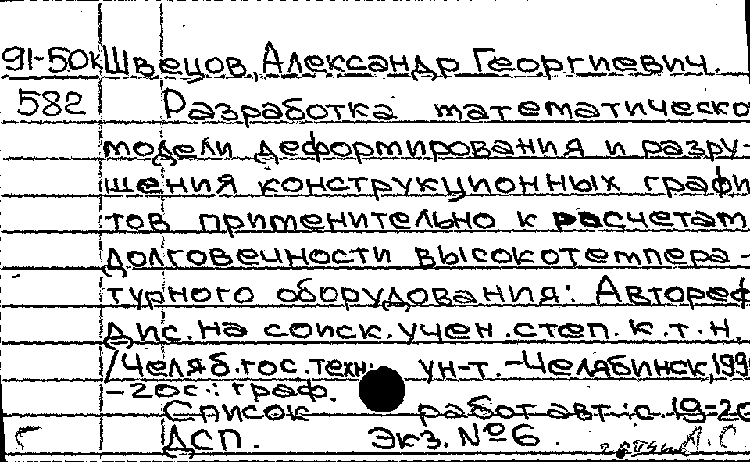 91-50к Швецов, Александр Георгиевич.
582 Разработка математическо
модели деформирования и разру-
шения конструкционных графи
тов применительно к расчетам
долговечности высокотемпера-
турного оборудования: Автореф
дис. на соиск. учен. степ. к.т.н.
/Челяб. гос. техн. ун-т. -Челябинск, 199
-20с.: граф.
Список работ авт.: с. 19-20
ДСП. Экз. №6.